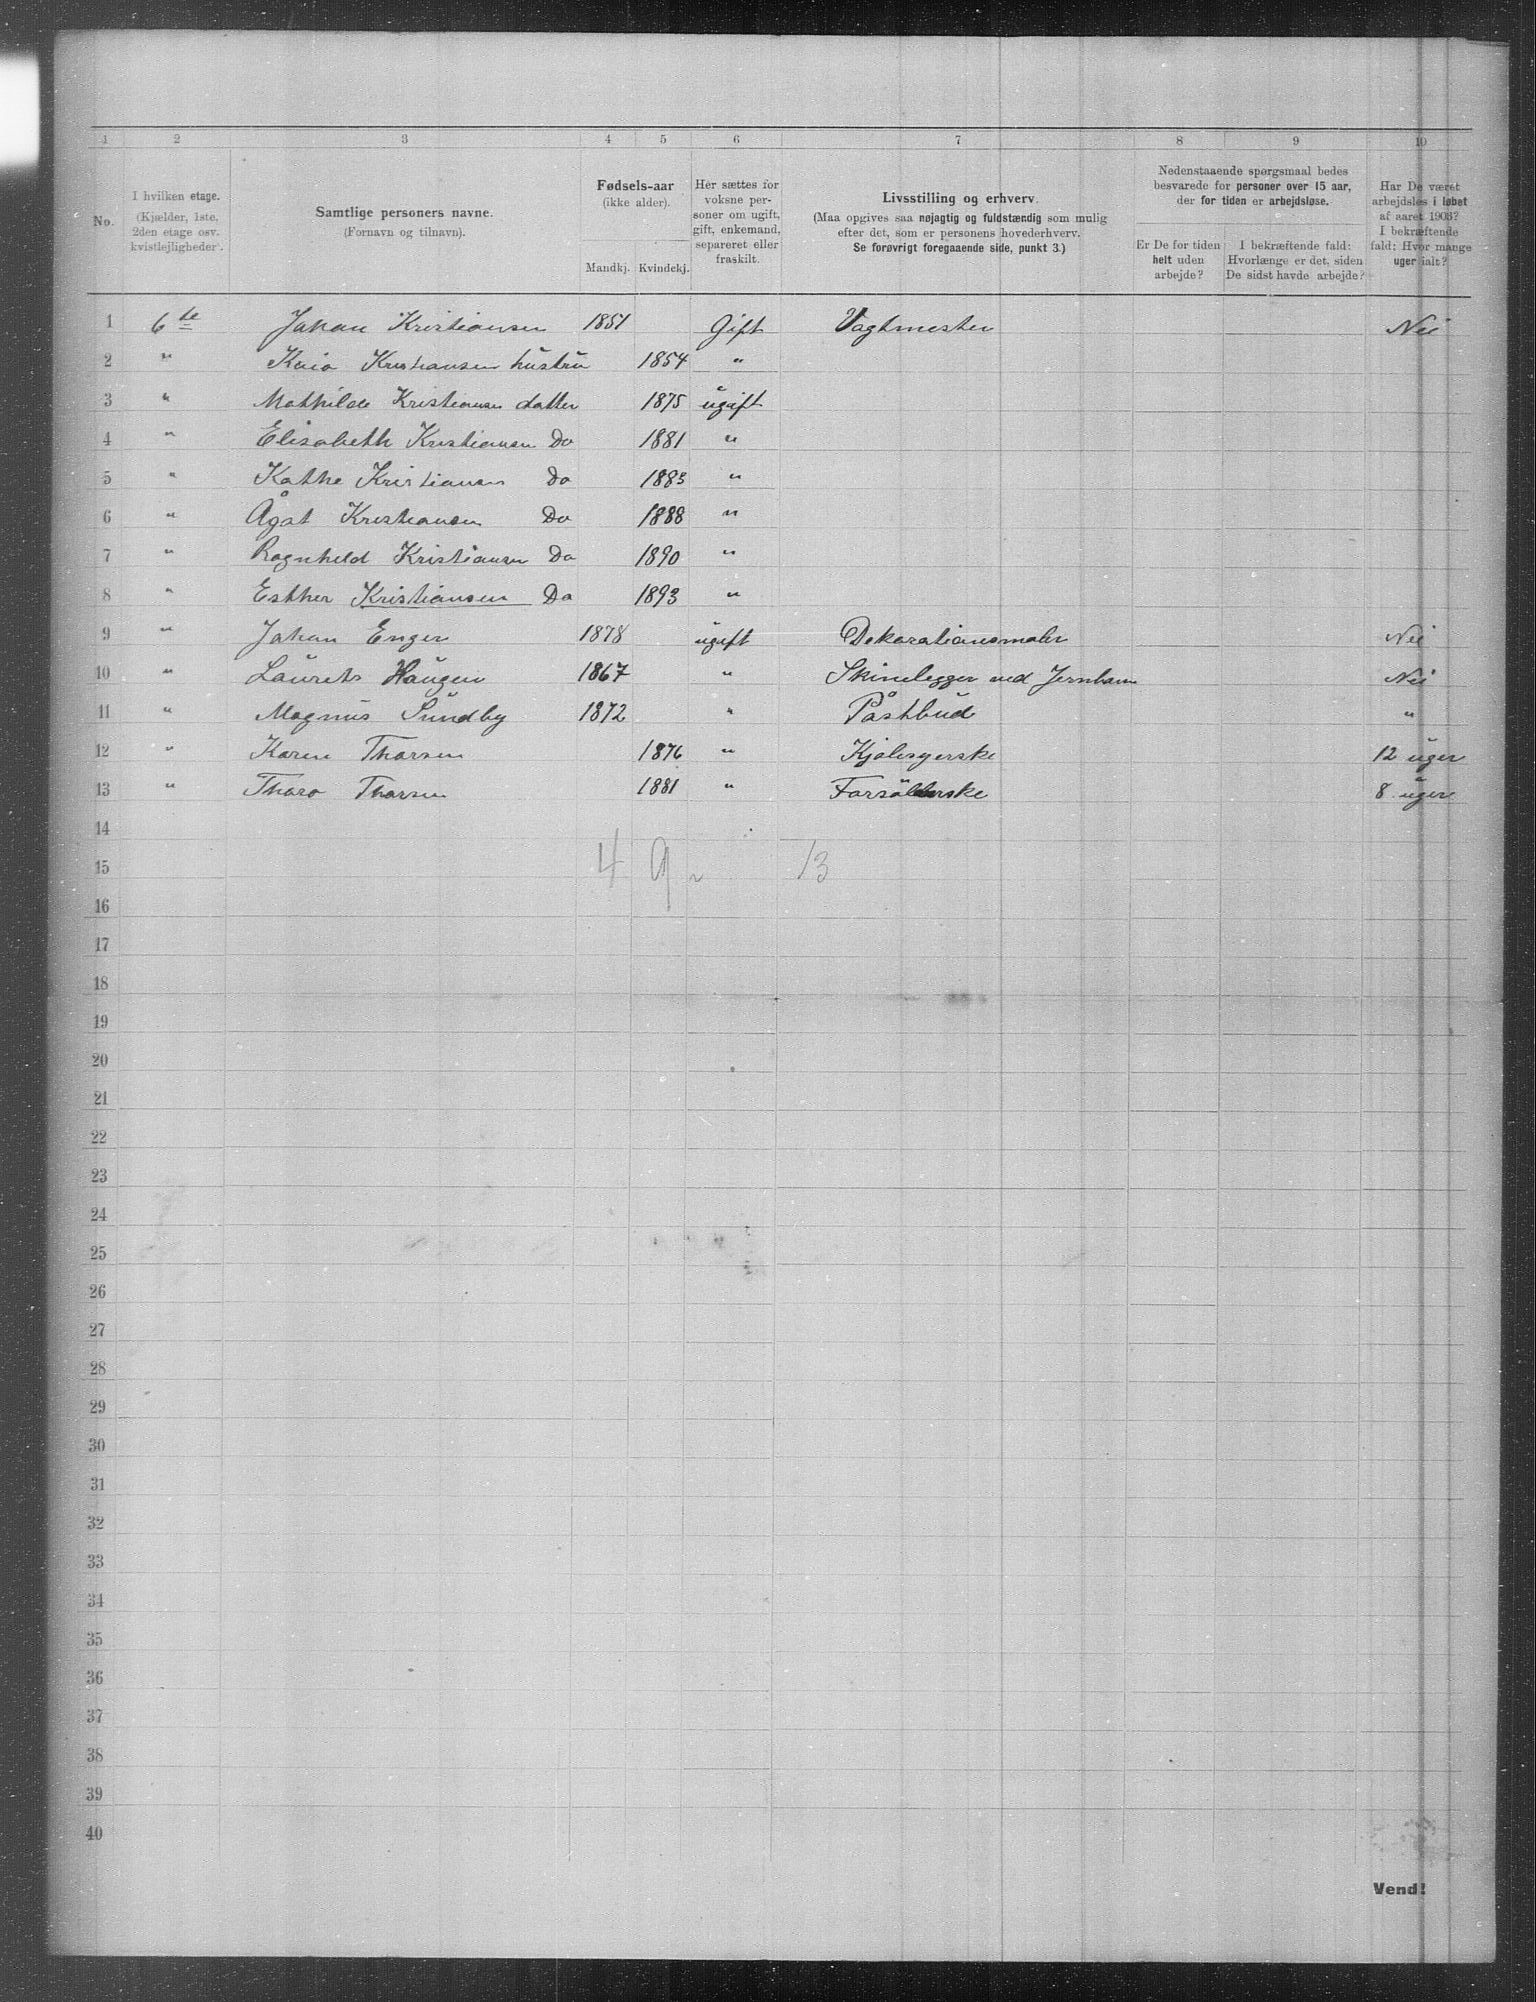 1 2 3 4 5 6 7 8 9 10
No.
I hvilken etage.
(Kjælder, 1ste,
2den etage osv.
kvistlejligheder).
Samtlige personers navne.
(Fornavn og tilnavn).
Fødsels-aar
(ikke alder).
Mandkj. Kvindekj.
Her sættes for
voksne per-
soner om ugift,
gift, enkemand,
separeret eller
fraskilt.
Livsstilling og erhverv.
(Maa opgives saa nøjagtig og fuldstændig som mulig
efter det, som er personens hovederhverv.
Se forøvrigt foregaaende side, punkt 3.)
Nedenstaaende spørgsmaal bedes
besvarede for personer over 15 aar,
der for tiden er arbejdsløse.
Er De for tiden
helt uden
arbejde?
I bekræftende fald:
Hvorlænge er det, siden
De sidst havde arbejde?
Har De været
arbejdsløs i løbet
af aaret 1903?
I bekræftende
fald: Hvor mange
uger ialt?
1 6te Johan Kristiansen 1851 Gift Vagtmester Nei
2 " Kaia Kristiansen hustru 1854 "
3 " Mathilde Kristiansen datter 1875 ugift
4 " Elisabeth Kristiansen Do 1881 "
5 " Kathe Kristiansen Do 1883 "
6 " Ågot Kristiansen Do 1888 "
7 " Ragnhild Kristiansen Do 1890 "
8 " Esther Kristiansen Do 1893 "
9 " Johan Enger 1878 ugift Dekorationsmaler Nei
10 " Laurets Haugen 1867 " Skinelegger ved Jernban Nei
11 " Magnus Sundby 1872 " Påstbud "
12 " Karen Thorsen 1876 " Kjolesyerske 12 uger
13 " Thora Thorsen 1881 " 8 uger
14
15 4 9 13
16
17
18
19
20
21
22
23
24
25
26
27
28
29
30
31
32
33
34
35
36
37
38
39
40
Vend!